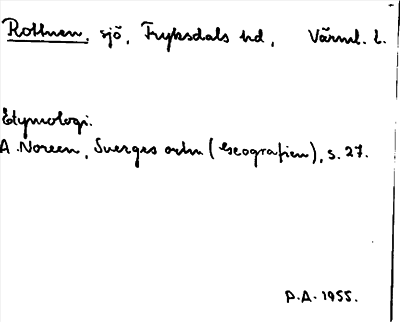 Rottnen, sjö, Fryksdals hd, Värml. l.
Etymologi.
A. Noreen, Sverges ortn. (Geografien), s. 27.
P.A. 1955.